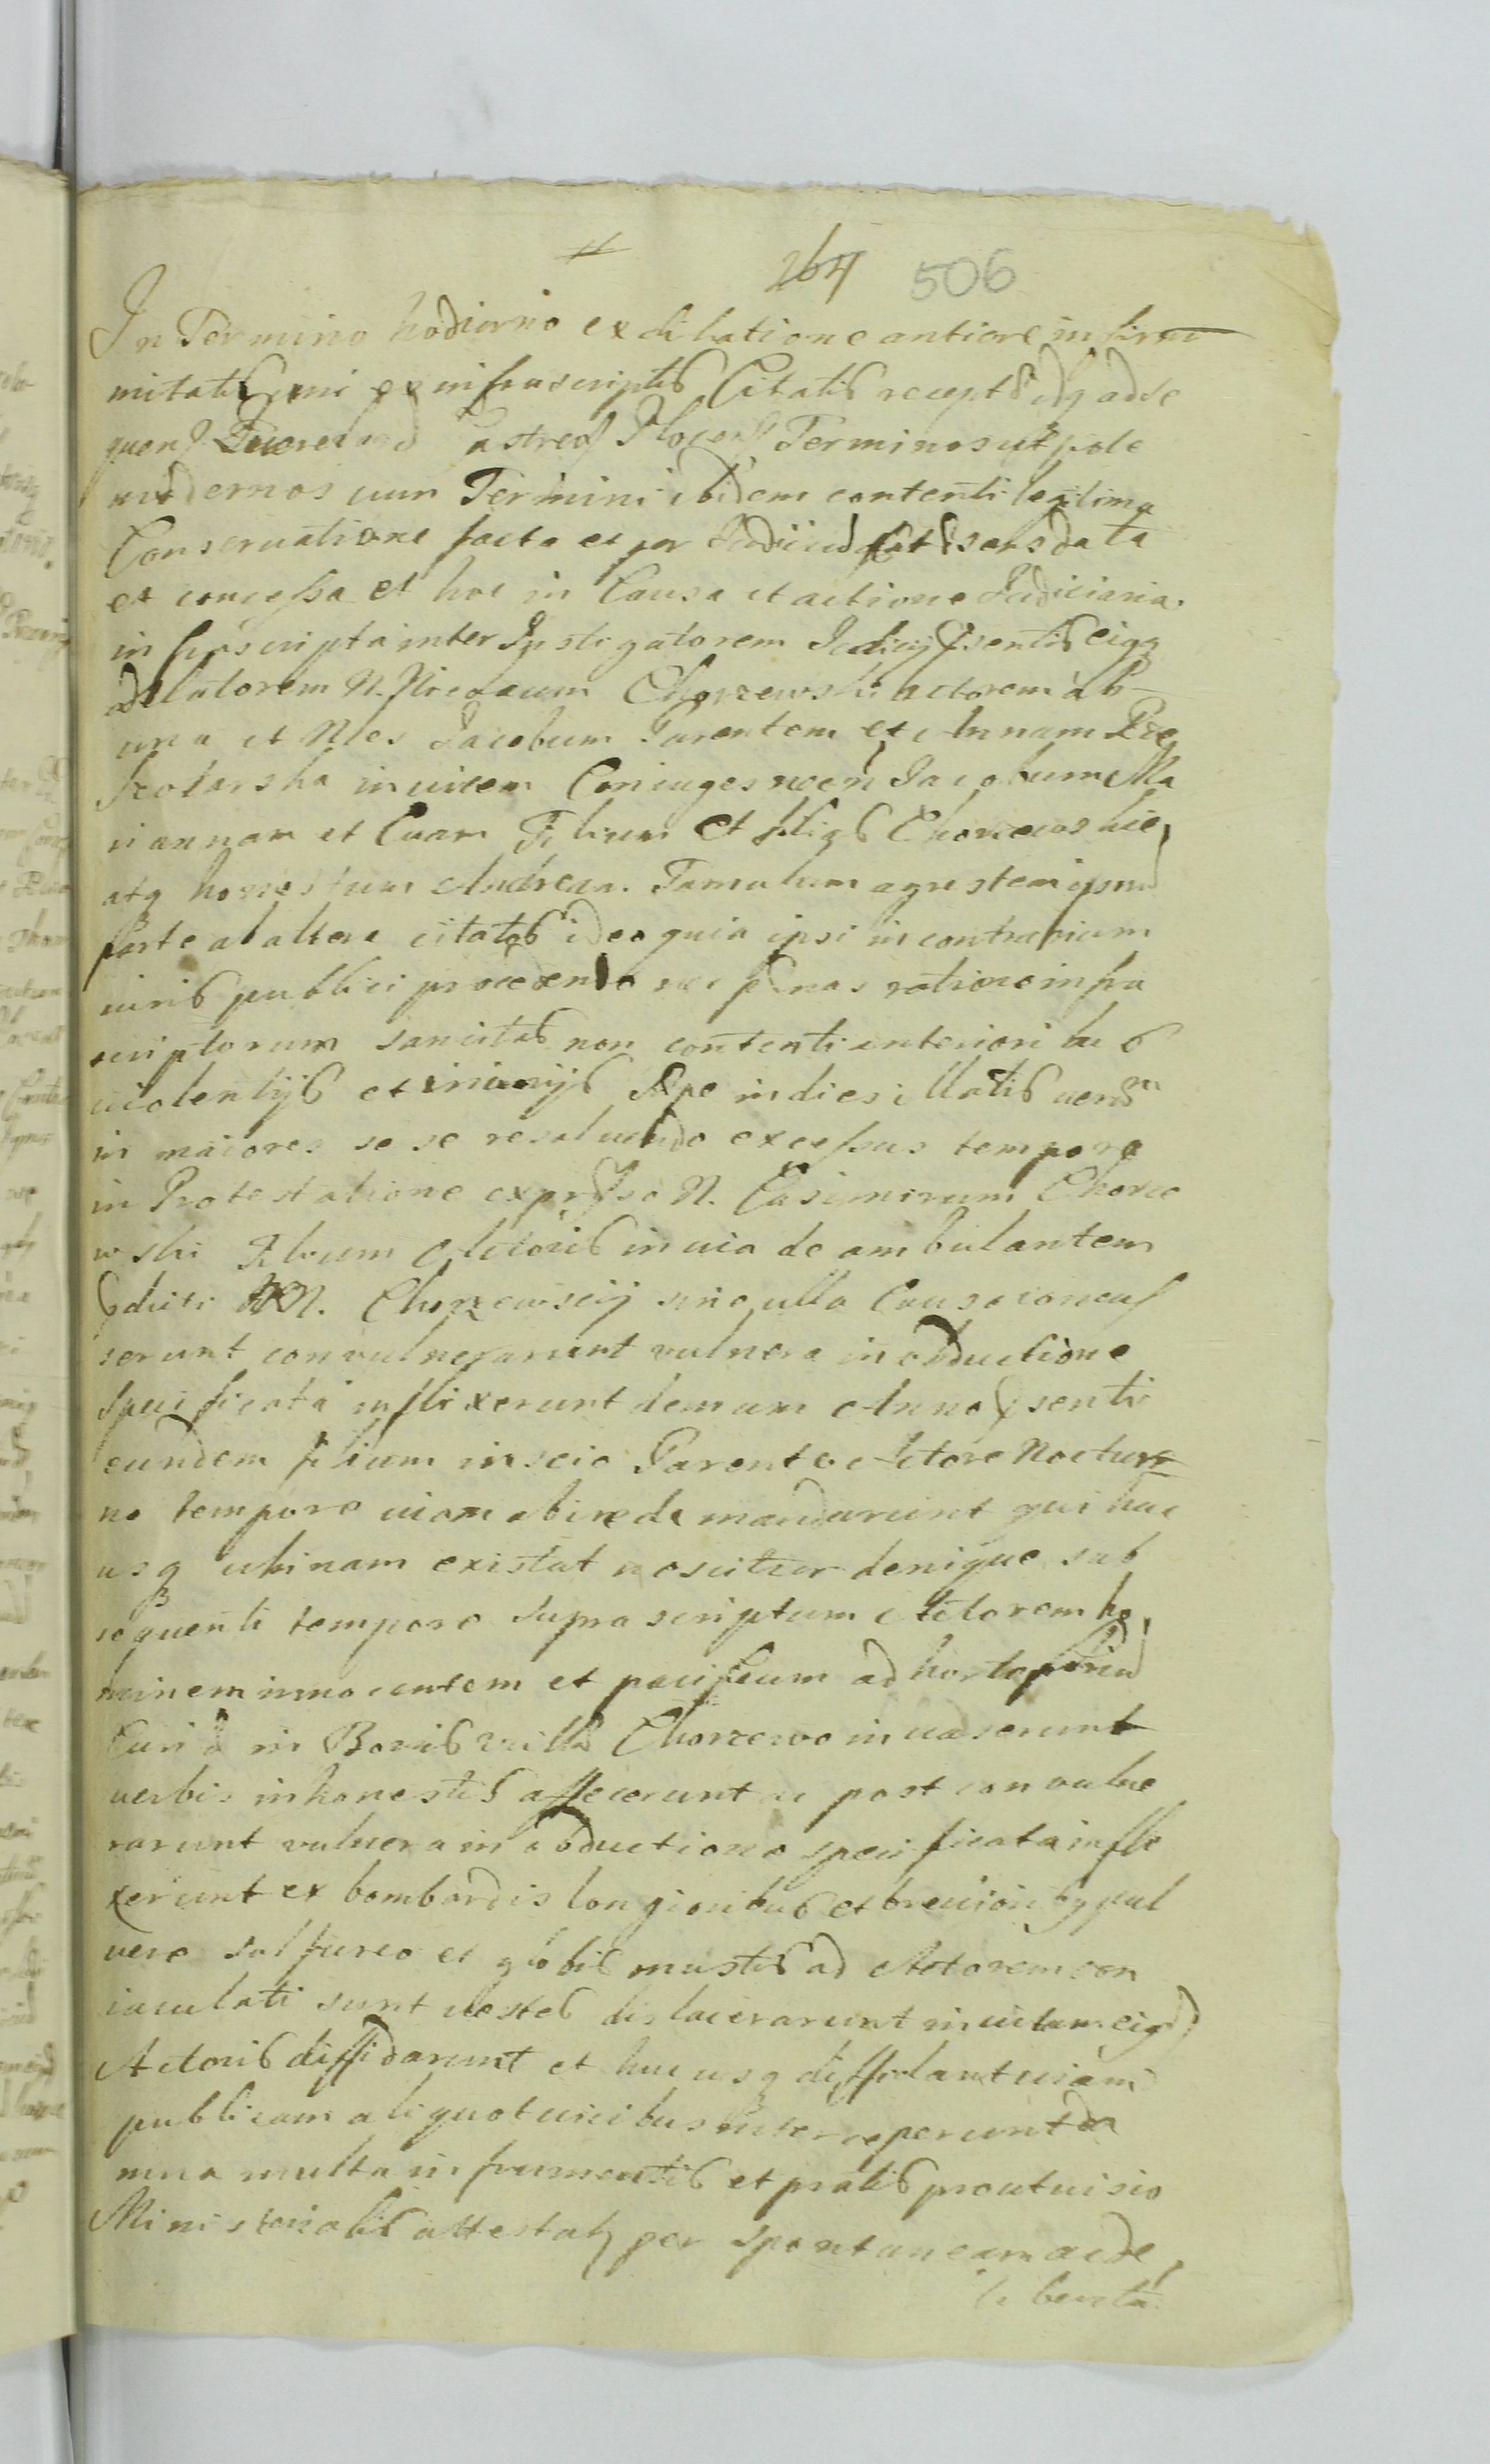 264 506
In Termino hodierno ex dilatione antiore infir
mitatis uni ex infrascriptis Citatis recept idq adse
quen Castren Plocen Terminos utpote
modernos cum Termini ibidem contenti legitima
Conservatione facta et per Judicium data
et concessa et hoc in Causa et actione Judiciaria
infrascripta inter Instigatorem Judicij psentis eiqz
delatorem N. Nicolaum Chorzewski actorem ab
una et Nles Jacobum Parentem et Annam
in uicem Coniuges necn Jacobum Ma
riannam et Evam Filium et filias Chorzewskie
atq honestum Andream Famulum agrestem
parte ab altera citatos ideo quia ipsi in contrarium
iuris publici procedendo nec penas ratione infra
scriptorum sancitas non contenti anterioribus
uiolentijs et iniurijs sepe indies illatis uerum
in maiores se se resoluendo excessus tempore
in Protestatione expresso N. Casimirum Chorze
wski Filium Actoris in uia de ambulantem
pdicti NN. Chorzewscij sine ulla Causa concus
serunt convulnerarunt vulnera in obductione
specificata inflixerunt demum Anno psenti
eundem filium inscio Parente Actore Noctur
no tempore uiam abire de mandarunt qui huc
usq ubinam existat noscitur denique sub
sequenti tempore supra scriptum Actorem ho
minem innocentem et pacificum ad horto
Curia in Bonis Villa Chorzewo inuaserunt
uerbis inhonestis affecerunt ac post convulne
rarunt vulnera in obductione specificata infli
xerunt ex bombardis longioribus et breuioribq pul
uere sulfureo et globis mustis ad Actorem con
iaculati sunt uestes dislacerarunt in uitam eiqd
Actoris diffidarunt et huc usq diffidant uiam
publicam aliquot uicibus interceperunt da
mna multa in frumentis et pratis prout uisio
Ministerialis attestatq per spontaneam ac de
liberata